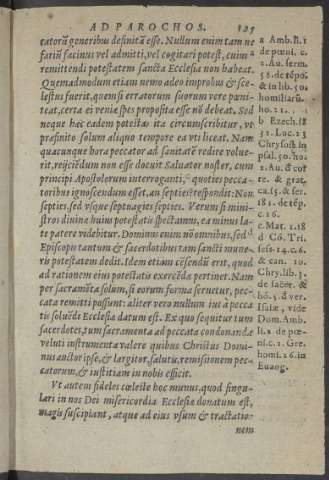 AD PAROCHOS. 125
catorũ generibus definitã esse. Nullum enim tam ne
fariũ facinus vel admitti, vel cogitari potest, cuius
remittendi potestatem sancta Ecclesia non habeat.
Quemadmodum etiam nemo adeo improbus & sce-
lestus fuerit, quem si erratorum suorum vere pœni-
teat, certa ei veniæ spes proposita esse nõ debeat. Sed
neque hæc eadem potestas ita circumscribitur, vt
præfinito solum aliquo tempore ea vti liceat. Nam
quacunque hora peccator ad sanitatẽ redire volue-
rit, reijciẽdum non esse docuit Saluator noster, cum
principi Apostolorum interroganti, quoties pecca-
toribus ignoscendum esset, an septies: respondit: Non
septies, sed vsque septuagies septies. Verum si mini-
stros diuinæ huius potestatis spectamus, ea minus la-
te patere videbitur. Dominus enim nõ omnibus, sed
Episcopis tantum & sacerdotibus tam sancti mune-
ris potestatem dedit. Idem etiam cẽsendũ erit, quod
ad rationem eius potestatis exercẽdæ pertinet. Nam
per sacramẽta solum, si eorum forma seruetur, pec-
cata remitti possunt: aliter vero nullum ius à pecca
tis soluẽdi Ecclesiæ datum est. Ex quo sequitur tum
sacerdotes, tum sacramenta ad peccata condonanda
veluti instrumenta valere quibus Christus Domi-
nus auctor ipse, & largitor, salutis, remissionem pec-
catorum, & iustitiam in nobis efficit.
Vt autem fideles cœleste hoc munus, quod singu-
lari in nos Dei misericordia Ecclesiæ donatum est,
magis suscipiant, atque ad eius vsum & tractatio-
nem
a Amb. li. 1
de pœni. c.
2. Au. serm.
58. de tẽpo.
& in lib. 50
homiliarũ.
ho. 21.
b Ezech. 18
32. Luc. 23
Chrysost. in
psal. 50. ho.
2. Au. d cor
re. & grat.
ca. 15. & ser.
181. de tẽp.
c. 16.
c Mat. 18
d Cõ. Tri.
sess. 14. c. 6.
& can. 10.
Chry. lib. 3.
de sacer. &
hõ. 5. d ver.
Isaiæ, vide
Dum. Amb.
li. 1. de pœ-
ni. c. 2. Gre.
homi. 26. in
Euang.